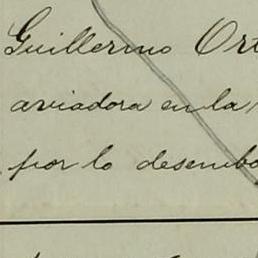 Guillermo Ort
aviadora en la
por lo desembo